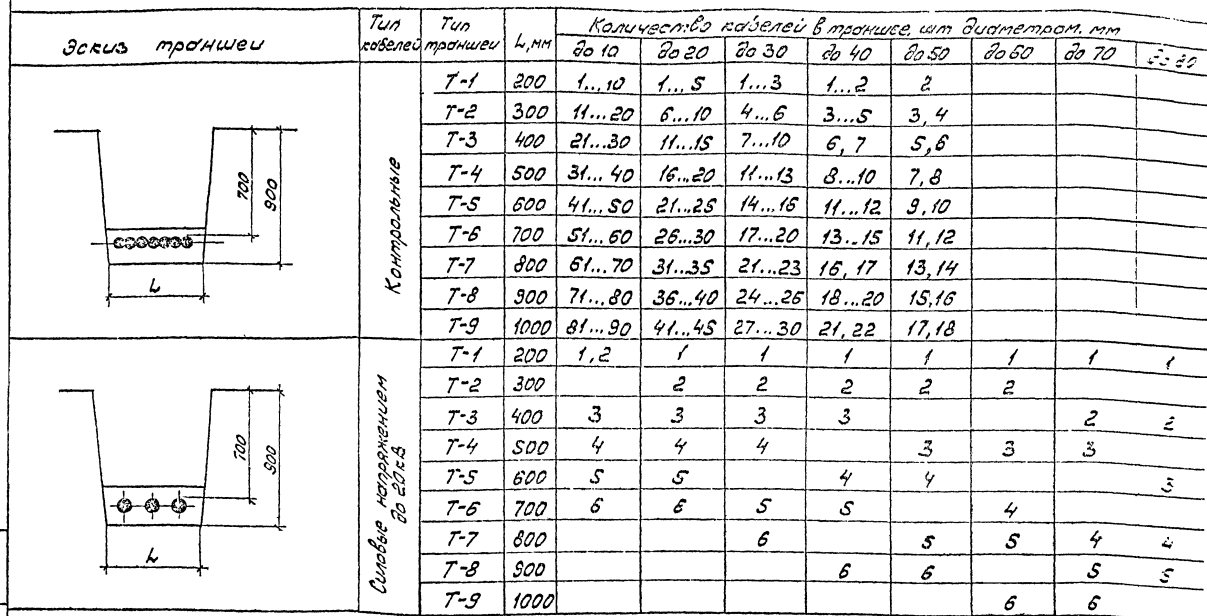 Эскиз траншеи Тип кабелей Тип траншеи L, мм Количество кабелей в траншее, шт диаметром, мм
до 10 до 20 до 30 до 40 до 50 до 60 до 70 до 80
Контрольные
Т-1 200 1...10 1...5 1...3 1...2 2
Т-2 300 11...20 6...10 4...6 3...5 3, 4
Т-3 400 21...30 11...15 7...10 6, 7 5,6
Т-4 500 31...40 16...20 11...13 8...10 7,8
Т-5 600 41...50 21...25 14...16 11...12 9,10
Т-6 700 51...60 26...30 17...20 13...15 11,12
Т-7 800 61...70 31...35 21...23 16, 17 13,14
Т-8 900 71...80 36...40 24...26 18...20 15,16
Т-9 1000 81...90 41...45 27...30 21, 22 17,18
700
900
L
Силовые напряжением до 20 кВ
Т-1 200 1,2 1 1 1 1 1 1 1
Т-2 300 2 2 2 2 2
Т-3 400 3 3 3 3 2 2
Т-4 500 4 4 4 3 3 3
Т-5 600 5 5 4 4 3
Т-6 700 6 6 5 5 4
Т-7 800 6 5 5 4 4
Т-8 900 6 6 5 5
Т-9 1000 6 6
700
900
L